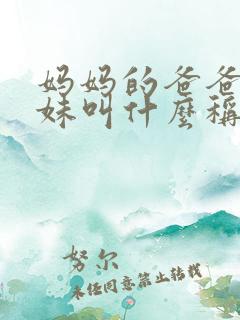 妈妈的爸爸
妹叫什麽稱
努尔
未经同意禁止转载